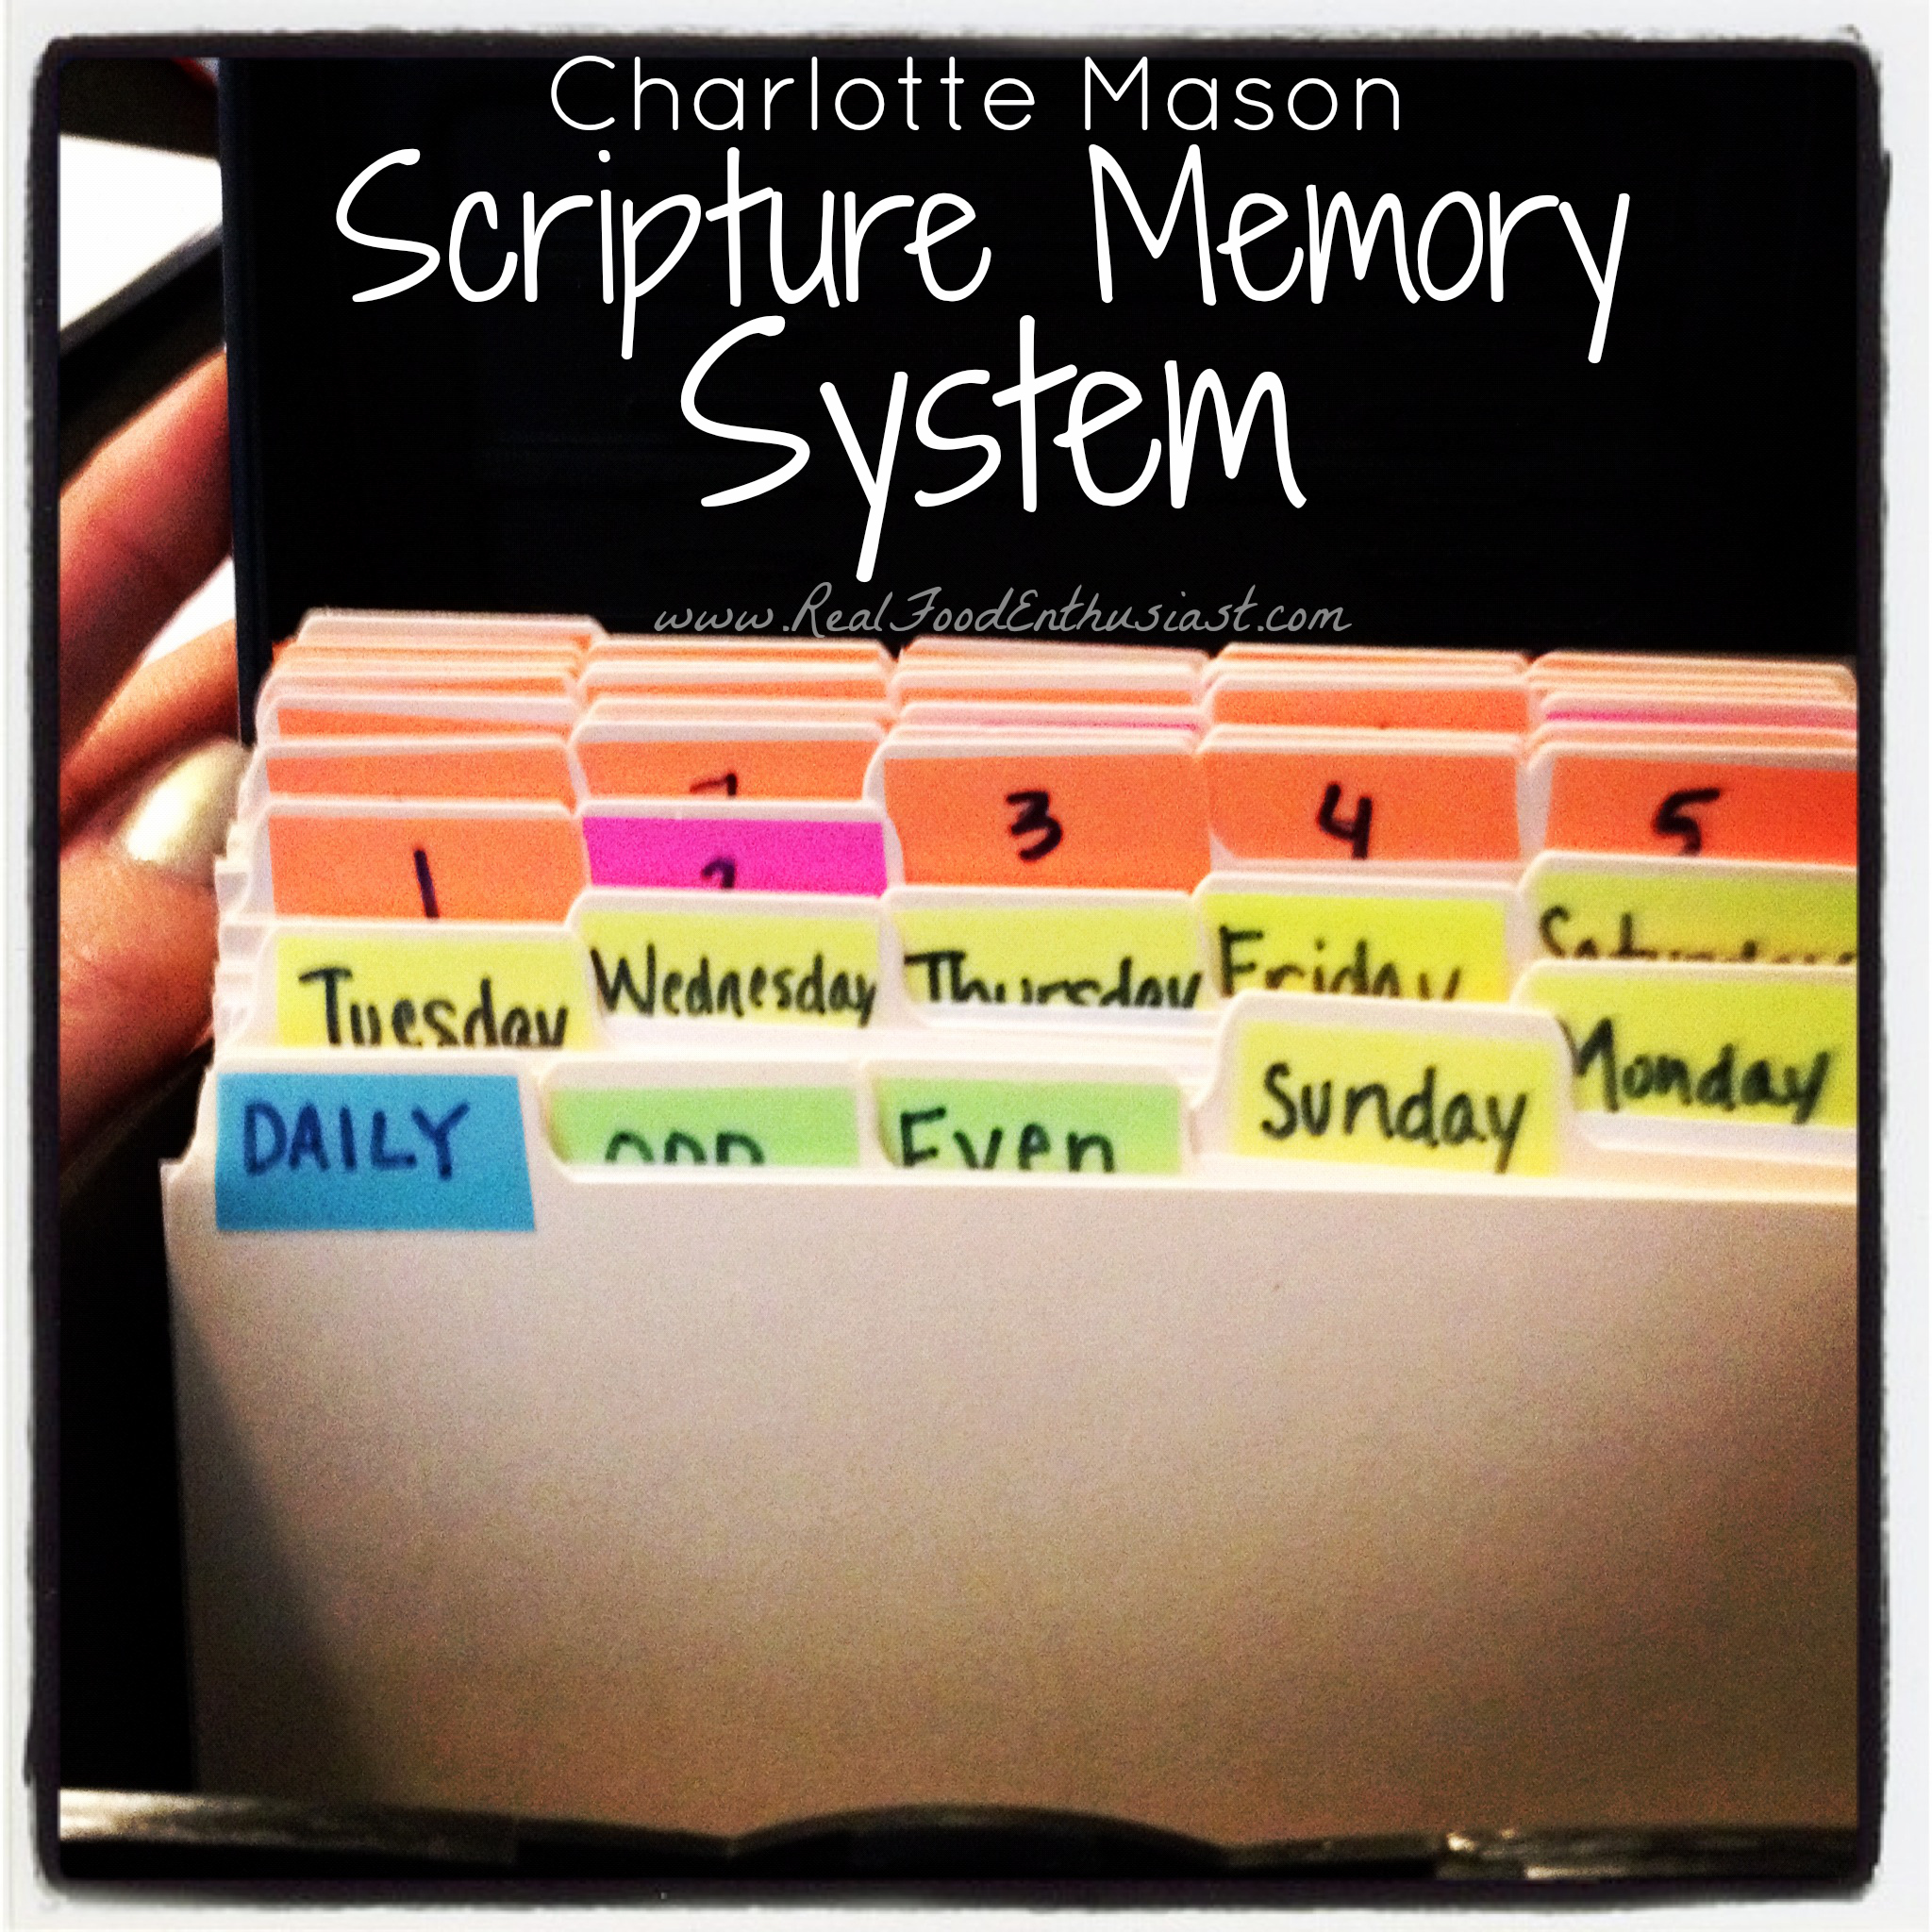 Charlotte Mason
Scripture Memory
System
www.RealFoodEnthusiast.com
3 4 5
1
Tuesday Wednesday Thursday Friday
Sunday Monday
DAILY Even